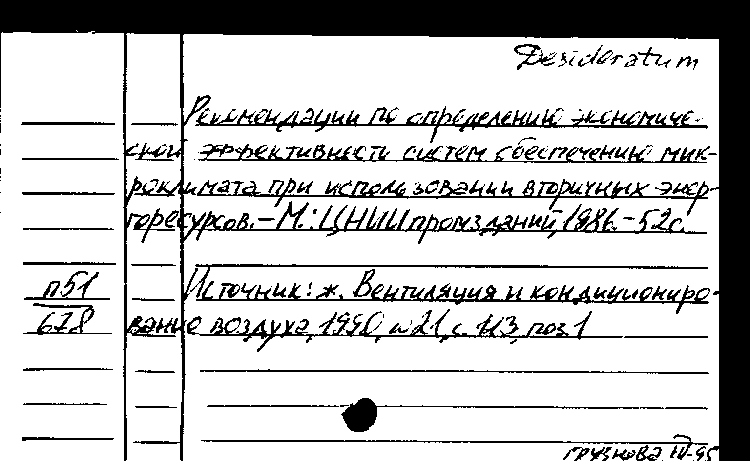 Desideratum
Рекомендации по определению экономиче-
ской эффективности систем обеспечению мик-
роклимата при использовании вторичных энер-
горесурсов. – М.: ЦНИИпромзданий, 1986. – 52с.
п51
678
Источник: ж. Вентиляция и кондициониро-
вание воздуха, 1990, №21, с. 113, поз. 1
Грузнова IV-95